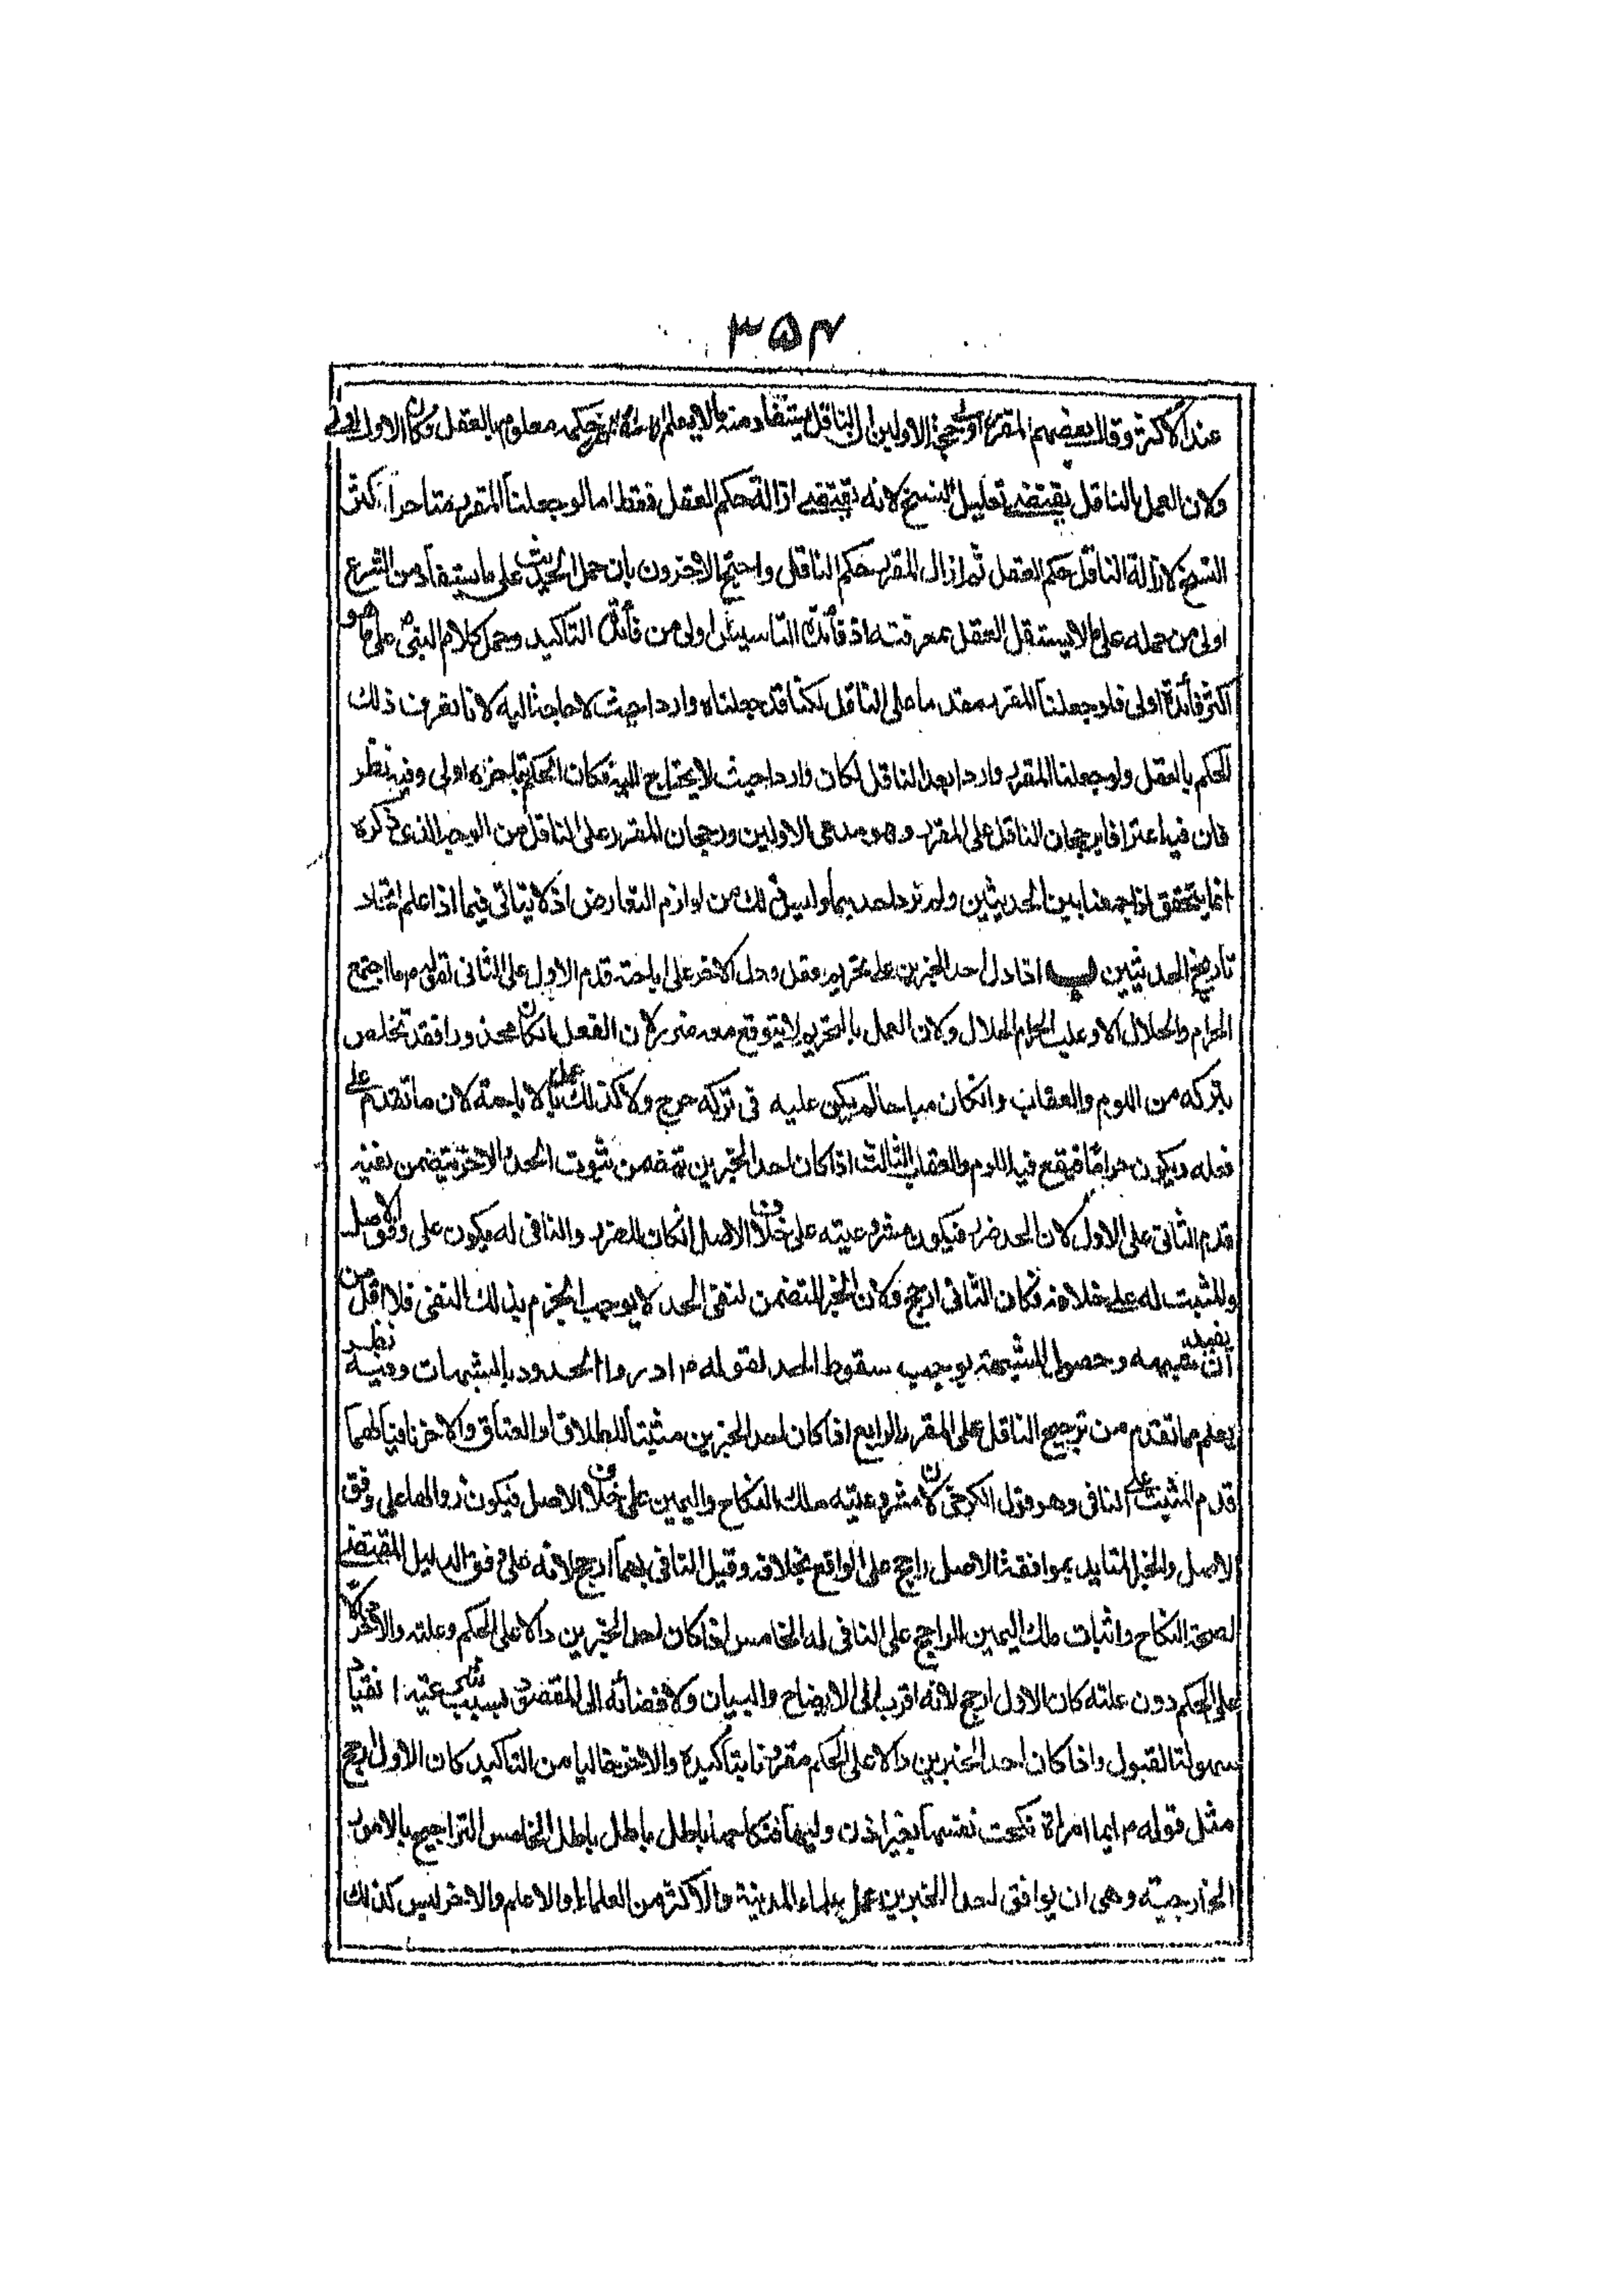 ٣٥٤
عند الاكثر وقال بعضهم المقرر اولى حجة الاولين ان الناقل يستفاد منه ما لا يعلم الا منه حكمه معلوم بالعقل فكان الاول اولى
ولان العمل بالناقل يقتضى تعليل النسخ لانه يقتضى ازالة حكم العقل فقط اما لو جعلنا المقرر متاخرا كثر
النسخ لازالة الناقل حكم العقل ثم ازال المقرر حكم الناقل واحتج الاخرون بان حمل الحديث على ما يستفاد من الشرع
اولى من حمله على ما لا يستقل العقل بمعرفته اذ فائدة التاسيس اولى من فائدة التاكيد وحمل كلام النبي ص على ما هو
اكثر فائدة اولى فلو جعلنا المقرر مقدما على الناقل لكنا قد جعلناه واردا حيث لا حاجة اليه لانا نعرف ذلك
الحكم بالعقل ولو جعلنا المقرر واردا بعد الناقل لكان واردا حيث لا يحتاج اليه فكان الحكم بتاخره اولى وفيه نظر
فان فيه اعترافا برجحان الناقل على المقرر وهو مدعى الاولين ورجحان المقرر على الناقل من الوجه الذى ذكره
انما يتحقق اذا جمعنا بين الحديثين ولم نرد احديهما وليس ذلك من لوازم التعارض اذ لا يتاتى فيما اذا علم اتحاد
تاريخ الحديثين ب اذا دل احد الخبرين على تحريم فعل ودل الاخر على اباحته قدم الاول على الثانى لقوله م ما اجتمع
الحرام والحلال الا وغلب الحرام الحلال ولان العمل بالتحريم لا يتوقع معه ضرر لان الفعل ان كان محذورا فقد تخلص
بتركه من اللوم والعقاب وانكان مباحا لم يكن عليه فى تركه حرج ولا كذلك عمله بالاباحة لان ما تقدم على
فعله ويكون حراما فيقع فى اللوم والعقاب الثالث اذا كان احد الخبرين تضمن ثبوت الحد والاخر يتضمن نفيه
قدم الثانى على الاول لان الحد ضرر فيكون مشروعيته على خلاف الاصل انكان للضرر والنافى له يكون على وفق الاصل
والمثبت له على خلافه فكان الثانى ارجح ولان الخبر المتضمن لنفى الحد لا يوجب الجزم بذلك النفى فلا اقل من
ان يفيد شبهه وحصول الشبهة يوجب سقوط الحد لقوله م ادرءوا الحدود بالشبهات وفيه نظر
يعلم مما تقدم من ترجيح الناقل على المقرر الرابع اذا كان احد الخبرين مثبتا للطلاق او العتاق والاخر نافيا لهما
قدم المثبت على النافى وهو قول الكرخى لان مشروعيته ملك النكاح واليمين على خلاف الاصل فيكون زوالهما على وفق
الاصل والخبر المتايد بموافقة الاصل راجح على الواقع بخلافه وقيل النافى لهما ارجح لانه على وفق الدليل المقتضى
لصحة النكاح واثبات ملك اليمين الراجح على النافى له الخامس اذا كان احد الخبرين دالا على الحكم وعلته والاخر دالا
على الحكم دون علته كان الاول ارجح لانه اقرب الى الايضاح والبيان ولافضائه الى المقصود بسبب
سهولة القبول واذا كان احد الخبرين دالا على الحكم مقرونا بتاكيده والاخر خاليا من التاكيد كان الاول ارجح
مثل قوله م ايما امراة نكحت نفسها بغير اذن وليها فنكاحها باطل باطل باطل الخامس التراجيح بالامور
الخارجيته وهى ان يوافق احد الخبرين عمل علماء المدينة والاكثر من العلماء او الاعلم والاخر ليس كذلك